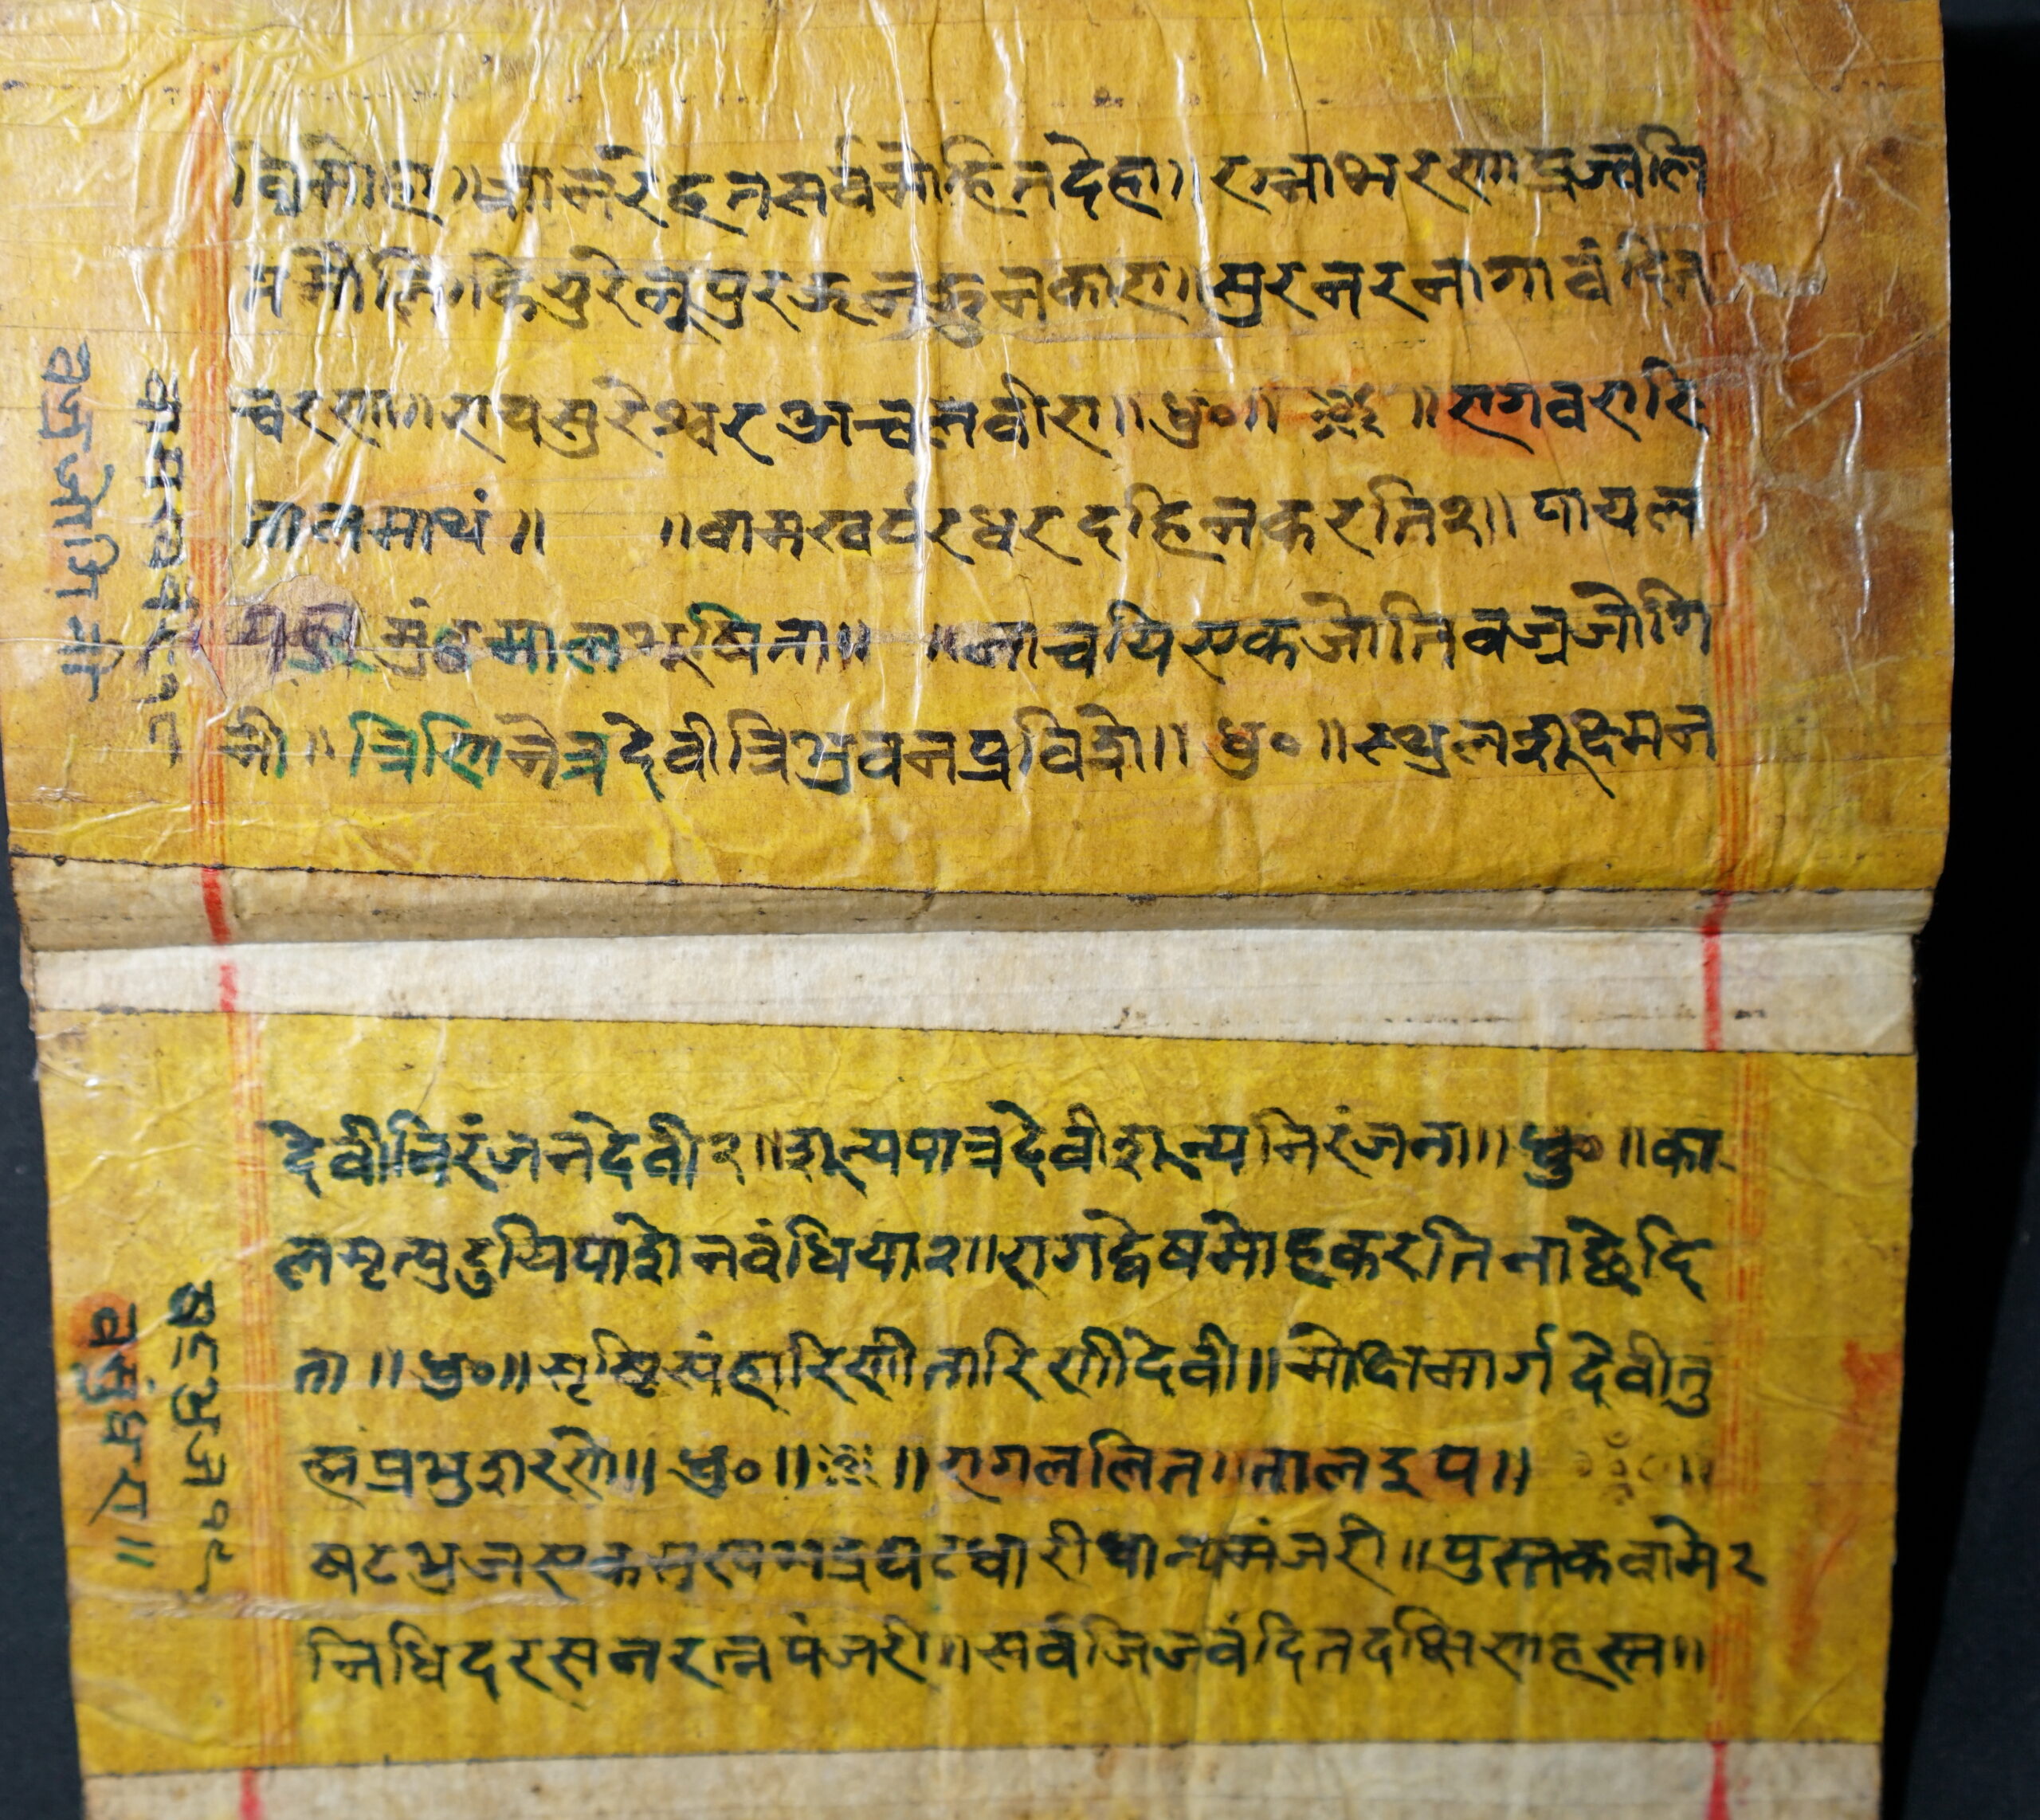 विमोहा॥ आनरे हन सर्वमोहितदेहा॥ रत्नाभरण प्रज्वलि
तमौलि॥ कियुरे नूपुर झनुझुनकारा॥ सुरनरनागा वंदित
चरणा॥ राय सुरेश्वर अचलवीरा॥ ध्रु०॥ ॥ रागवरारि
तालमाथं॥ ॥ वामखर्परधर दहिनकरति२॥ पायल
मुंडमालभूषिता॥ ॥ नाचयि एकजोति वज्रजोगि
नी॥ त्रिणिनेत्र देवी त्रिभुवनप्रविशे॥ ध्रु०॥ स्थुलशूक्ष्म न
वज्रजोगिनी
देवी निरंजनदेवी२॥ शून्यपात्र देवी शून्य निरंजना॥ ध्रु०॥ का
लमृत्यु दुयि पाशे न वंधिया२॥ रागद्वेषमोह करतिना छेदि
ता॥ ध्रु०॥ शृष्टिसंहारिणी तारिणीदेवी॥ मोक्षमार्ग देवी तु
ह्म प्रभु शरणे॥ ध्रु०॥ ॥ रागललित॥ ताल झप॥
षटभुज एकमुख भद्रघटधारी धान्यमंजरी॥ पुस्तक वामे २
निधिदरसन रत्नपंजरी॥ सर्वजिनवंदित दक्षिणहस्त॥
षटभुज
वसुंधरा॥